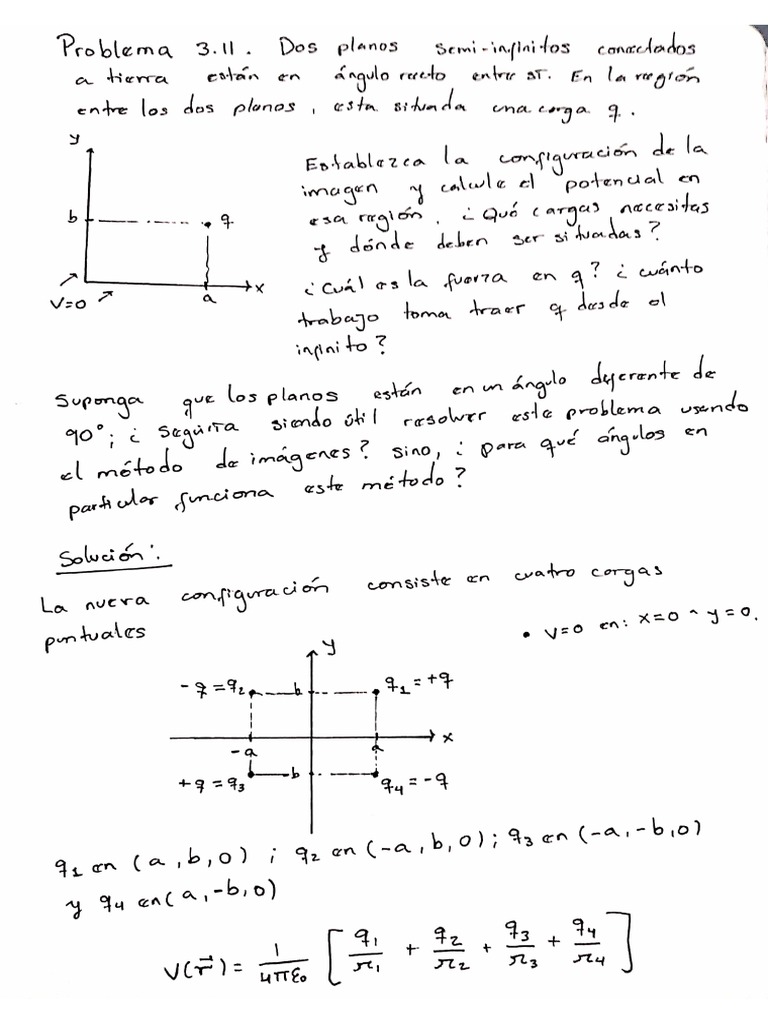 Problema 3.11. Dos planos semi-infinitos conectados
a tierra están en ángulo recto entre sí. En la región
entre los dos planos, esta situada una carga q.
y
b
q
a
x
V=0
Establezca la configuración de la
imagen y calcule el potencial en
esa región. ¿Qué cargas necesitas
y dónde deben ser situadas?
¿Cuál es la fuerza en q? ¿cuánto
trabajo toma traer q desde el
infinito?
Suponga que los planos están en un ángulo diferente de
90°; ¿seguiría siendo útil resolver este problema usando
el método de imágenes? sino, ¿para qué ángulos en
particular funciona este método?
Solución:
La nueva configuración consiste en cuatro cargas
puntuales
• V=0 en: x=0 ^ y=0.
y
-q=q₂
b
q₁=+q
x
-a
a
+q=q₃
-b
q₄=-q
q₁ en (a,b,0) ; q₂ en (-a,b,0); q₃ en (-a,-b,0)
y q₄ en (a,-b,0)
V(r⃗) = 1/4πε₀ [ q₁/r₁ + q₂/r₂ + q₃/r₃ + q₄/r₄ ]